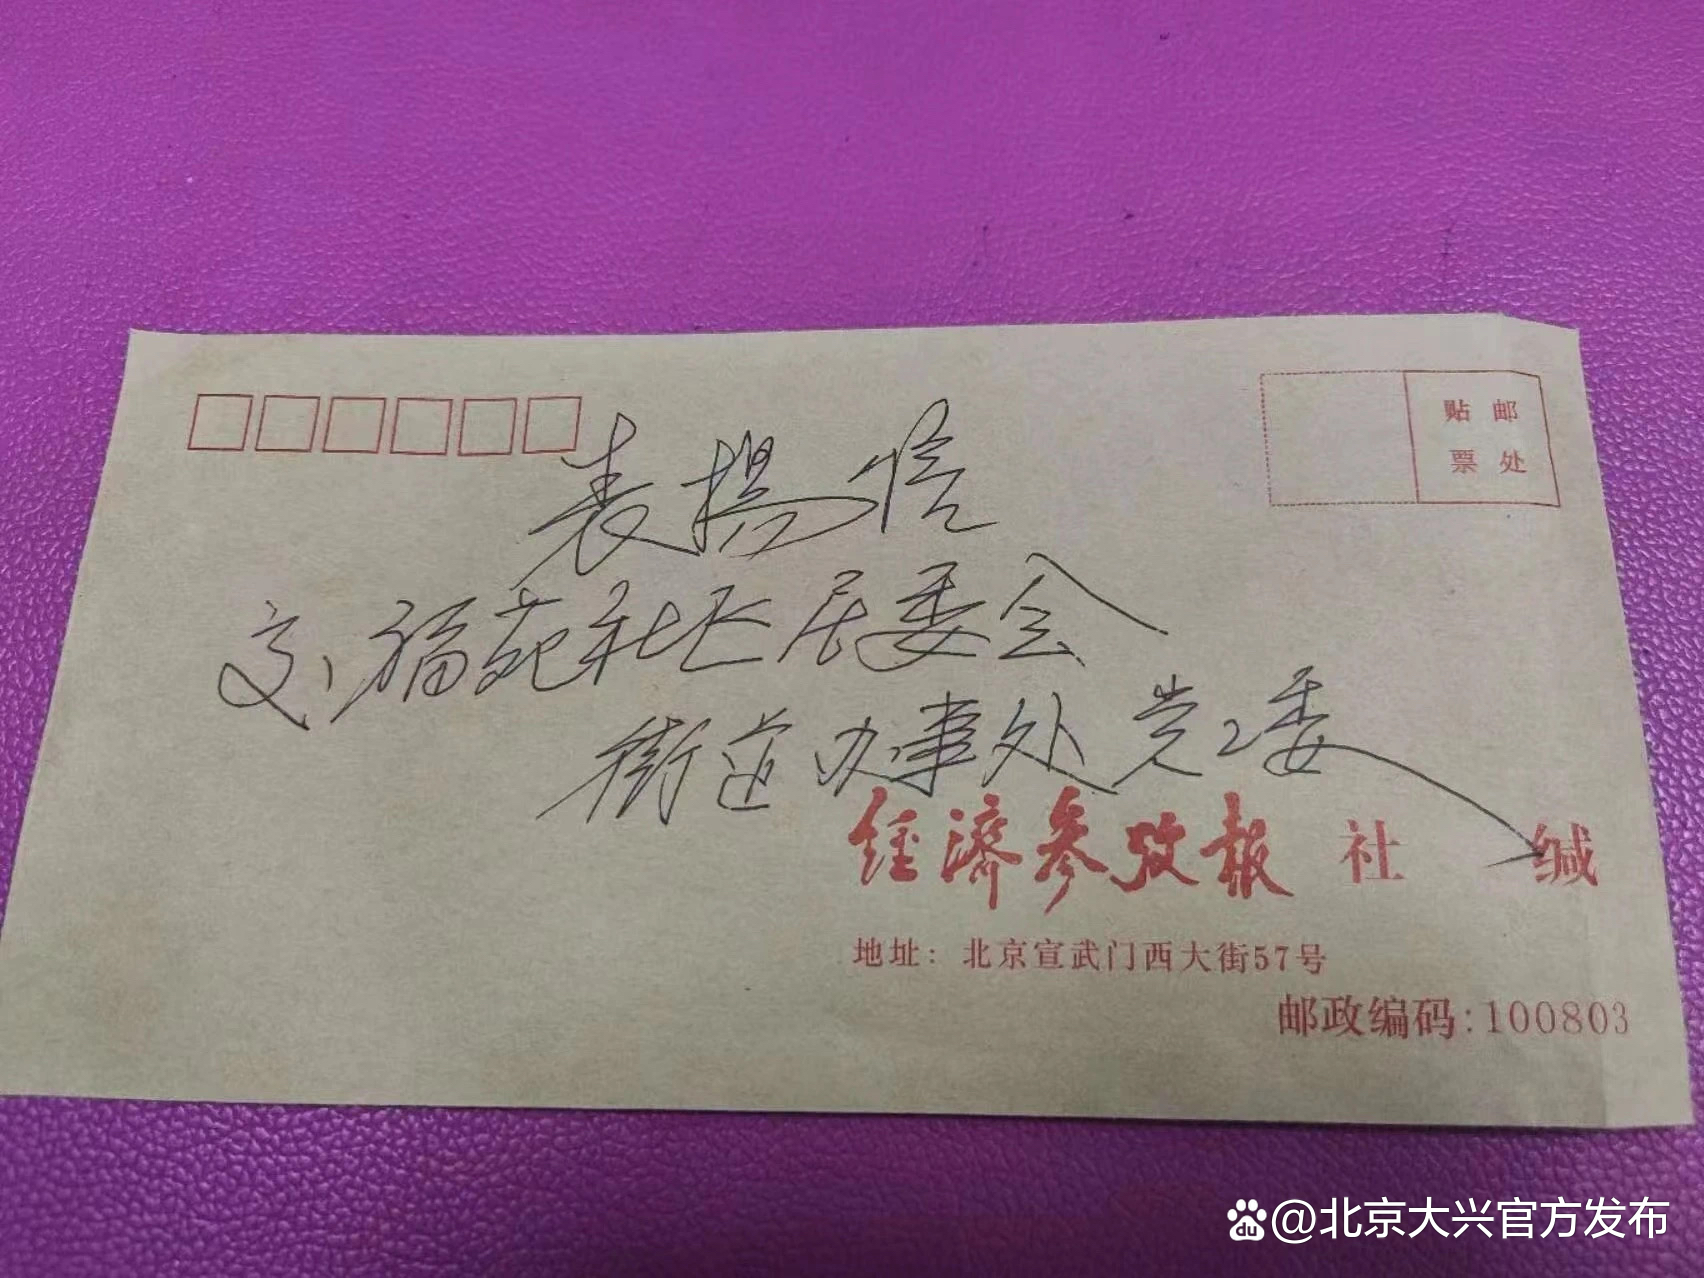 贴 邮
票 处
表扬信
交福苑社区居委会
街道办事处党工委
经济参考报 社 缄
地址：北京宣武门西大街57号
邮政编码:100803
du@北京大兴官方发布